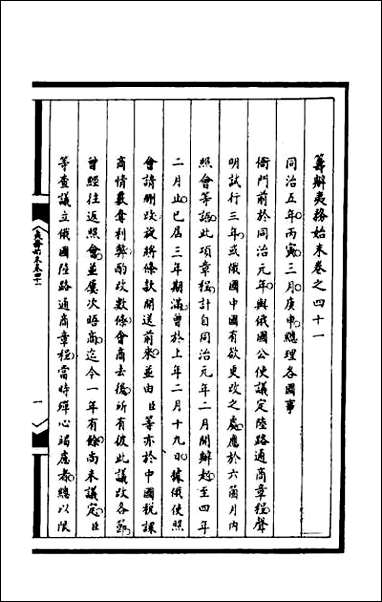 籌辦夷務始末卷之四十一
同治五年丙寅三月庚申總理各國事
衙門前於同治元年與俄國公使議定陸路通商章程聲
明試行三年或俄國中國有欲更改之處應於六箇月內
照會等語此項章程計自同治元年二月開辦起至四年
二月止已屆三年期滿曾於上年二月十九日據俄使照
會請刪改設將條款開送前來並由臣等亦於中國稅課
商情最奪利弊酌改數條會商去後所有彼此議改各節
曾經往返照會並屢次晤商迄今一年有餘尚未議定臣
等查議立俄國陸路通商章程當時殫心竭慮者總以限
夷務始末卷四十一
一